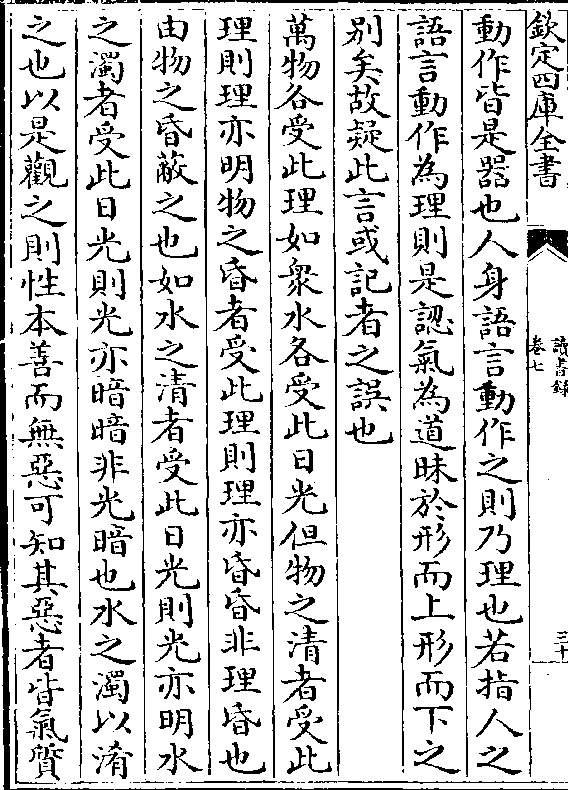 欽定四庫全書
讀書錄
卷七
三十
動作皆是器也人身語言動作之則乃理也若指人之
語言動作為理則是認氣為道昧於形而上形而下之
别矣故疑此言或記者之誤也
萬物各受此理如衆水各受此日光但物之清者受此
理則理亦明物之昏者受此理則理亦昏昏非理昏也
由物之昏蔽之也如水之清者受此日光則光亦明水
之濁者受此日光則光亦暗暗非光暗也水之濁以淆
之也以是觀之則性本善而無惡可知其惡者皆氣質